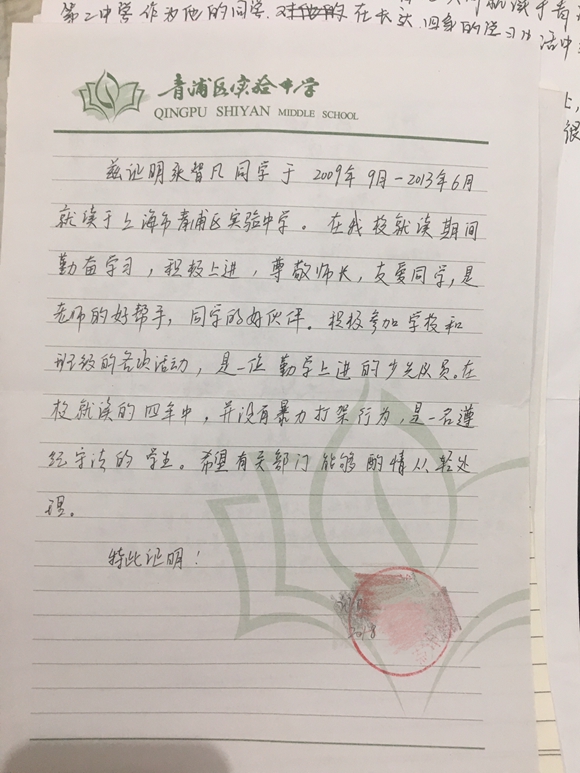 第二中学作为他的同学,对他的在长达四年的学习生活中
上,
很
青浦区实验中学
QINGPU SHIYAN MIDDLE SCHOOL
兹证明张智凡同学于 2009年9月-2013年6月
就读于上海市青浦区实验中学。在我校就读期间
勤奋学习,积极上进,尊敬师长,友爱同学,是
老师的好帮手,同学的好伙伴。积极参加学校和
班级的各项活动,是一位勤学上进的少先队员。在
校就读的四年中,并没有暴力打架行为,是一名遵
纪守法的学生。希望有关部门能够酌情从轻处
理。
特此证明!
2018